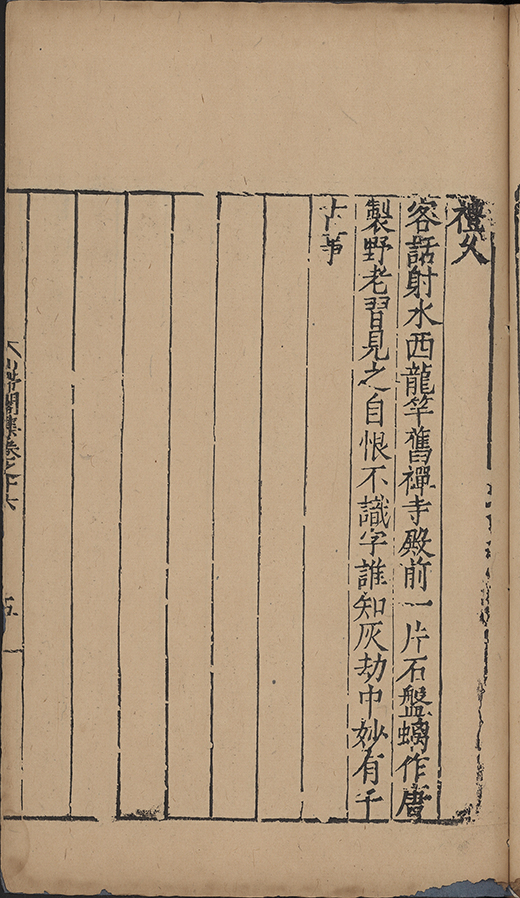 禮
客話射水西龍竿舊禪寺殿前一片石盤螭作唐
製野老習見之自恨不識字誰知灰劫中妙有千
古事
閣集卷之十六
五